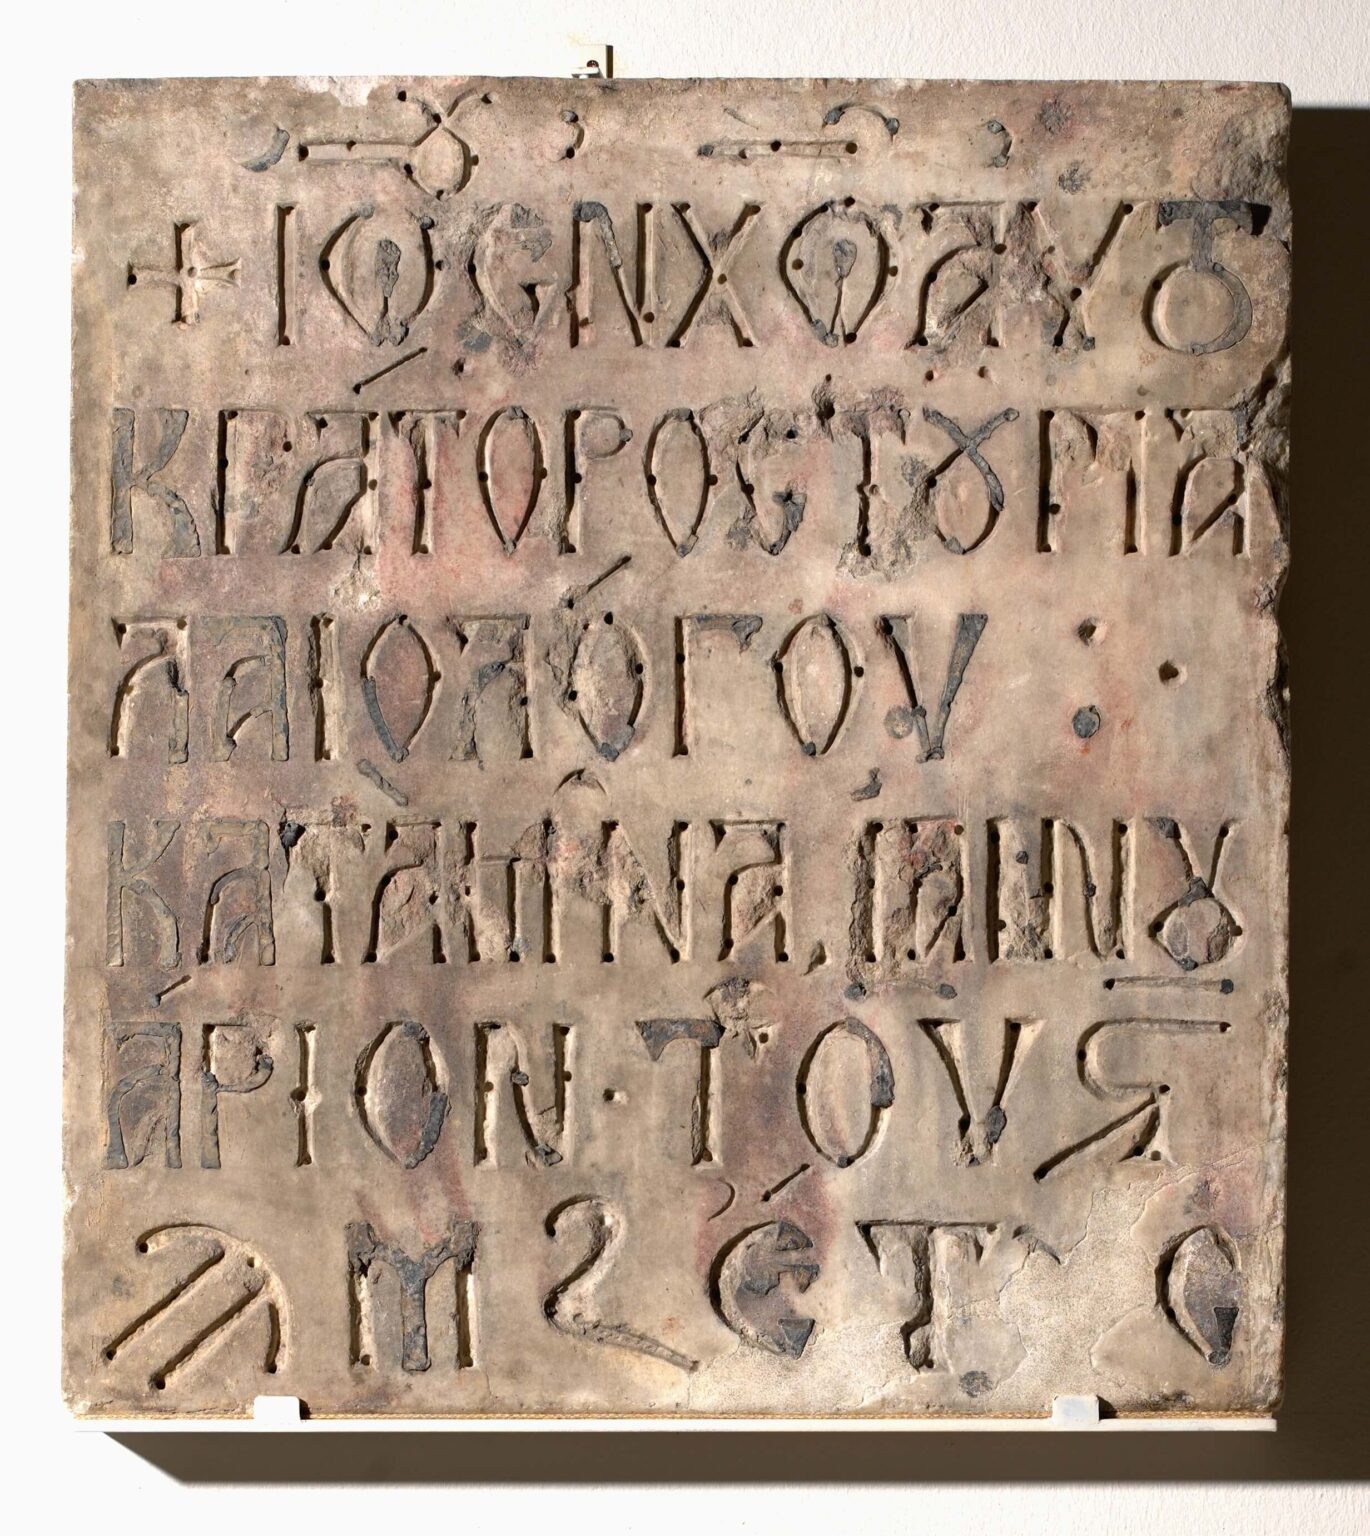 + ΙΩ ΕΝ ΧΩ ΑΥΤΟ
ΚΡΑΤΟΡΟϹ ΤΟΥ ΠΑ
ΛΑΙΟΛΌΓΟΥ ∴
ΚΑΤᾺ ΜΗ͂ΝΑ, ΙΑΝΝΟΥ
ΆΡΙΟΝ · ΤΟΥ Ϛ
ϠΜΖ ΈΤ